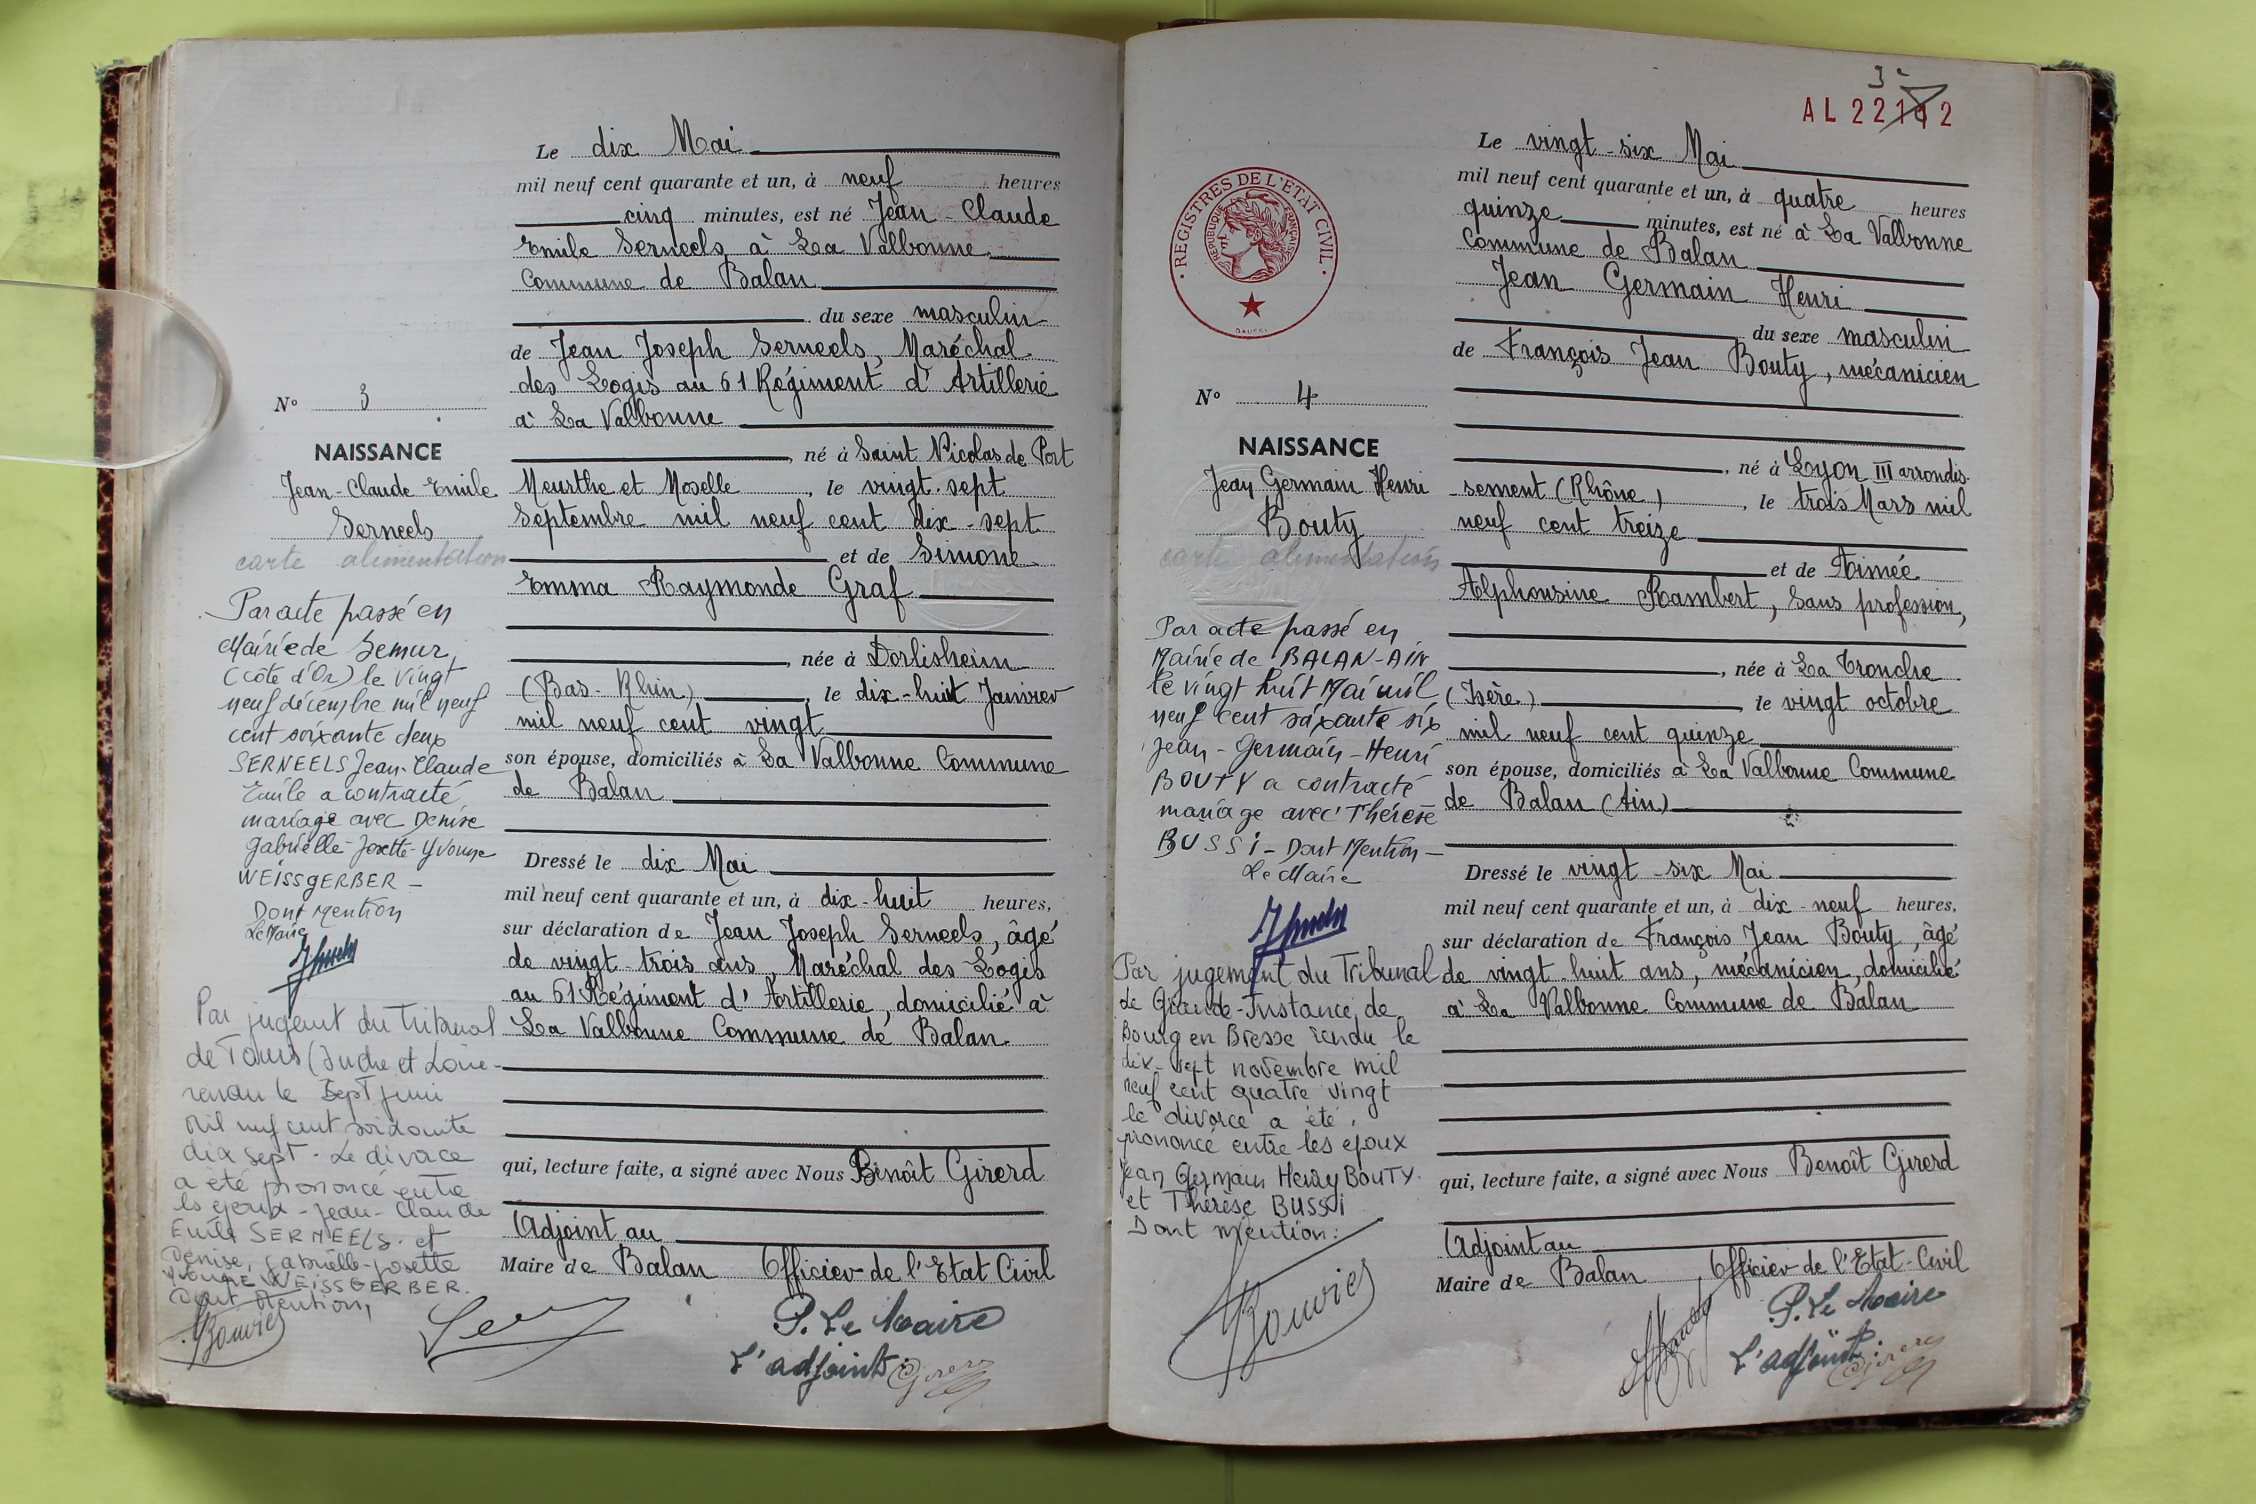 Le dix Mai
mil neuf cent quarante et un, à neuf heures
cinq minutes, est né Jean-Claude
Emile Serneels à La Valbonne
Commune de Balan
du sexe masculin
de Jean Joseph Serneels, Maréchal
des Logis au 61 Régiment d'Artillerie
à La Valbonne
N° 3
NAISSANCE
Jean-Claude Emile
Serneels
carte alimentation
, né à Saint Nicolas de Port
Meurthe et Moselle, le vingt-sept
Septembre mil neuf cent dix-sept
et de Simone
Emma Raymonde Graf
, née à Dorlisheim
(Bas-Rhin), le dix-huit Janvier
mil neuf cent vingt
son épouse, domiciliés à La Valbonne Commune
de Balan
Dressé le dix Mai
mil neuf cent quarante et un, à dix-huit heures,
sur déclaration de Jean Joseph Serneels, âgé
de vingt-trois ans, Maréchal des Logis
au 61 Régiment d'Artillerie, domicilié à
La Valbonne Commune de Balan.
qui, lecture faite, a signé avec Nous Benoît Girerd
Adjoint au
Maire de Balan Officier de l'Etat Civil
P. Le Maire
L'adjoint:
Girerd
Par acte passé en
Mairie de Semur
(Côte d'Or) le vingt
neuf décembre mil neuf
cent soixante deux
SERNEELS Jean-Claude
Emile a contracté
mariage avec Denise
Gabrielle-Josette-Yvonne
WEISSGERBER -
Dont Mention
Le Maire
Par jugemt du Tribunal
de Tours (Indre et Loire-
rendu le Sept Juin
mil neuf cent soixante
dix sept. Le divorce
a été prononcé entre
les époux - Jean-Claude
Emile SERNEELS. et
Denise, Gabrielle-Josette
Yvonne WEISSGERBER.
Dont Mention,
Bouvier
3e
AL 22192
Le vingt-six Mai
mil neuf cent quarante et un, à quatre heures
quinze minutes, est né à La Valbonne
Commune de Balan
Jean Germain Henri
du sexe masculin
de François Jean Bouty, mécanicien
REGISTRES DE L'ETAT CIVIL
REPUBLIQUE FRANÇAISE
N° 4
NAISSANCE
Jean Germain Henri
Bouty
carte alimentation
, né à Lyon III arrondis-
sement (Rhône), le trois Mars mil
neuf cent treize
et de Aimée
Alphonsine Rambert, sans profession,
, née à La Tronche
(Isère) le vingt octobre
mil neuf cent quinze
son épouse, domiciliés à La Valbonne Commune
de Balan (Ain)
Dressé le vingt-six Mai
mil neuf cent quarante et un, à dix-neuf heures,
sur déclaration de François Jean Bouty, âgé
de vingt-huit ans, mécanicien, domicilié
à La Valbonne Commune de Balan
qui, lecture faite, a signé avec Nous Benoît Girerd
Adjoint au
Maire de Balan, Officier de l'Etat-Civil
P. Le Maire
L'adjoint:
Girerd
Par acte passé en
Mairie de BALAN-AIN
le vingt huit Mai mil
neuf cent soixante six
Jean-Germain-Henri
BOUTY a contracté
mariage avec Thérèse
BUSSI - Dont Mention -
Le Maire
Par jugement du Tribunal
de Grande-Instance de
Bourg en Bresse rendu le
dix-sept novembre mil
neuf cent quatre vingt
le divorce a été
prononcé entre les époux
Jean Germain Henry BOUTY.
et Thérèse BUSSI
Dont mention:
Bouvier